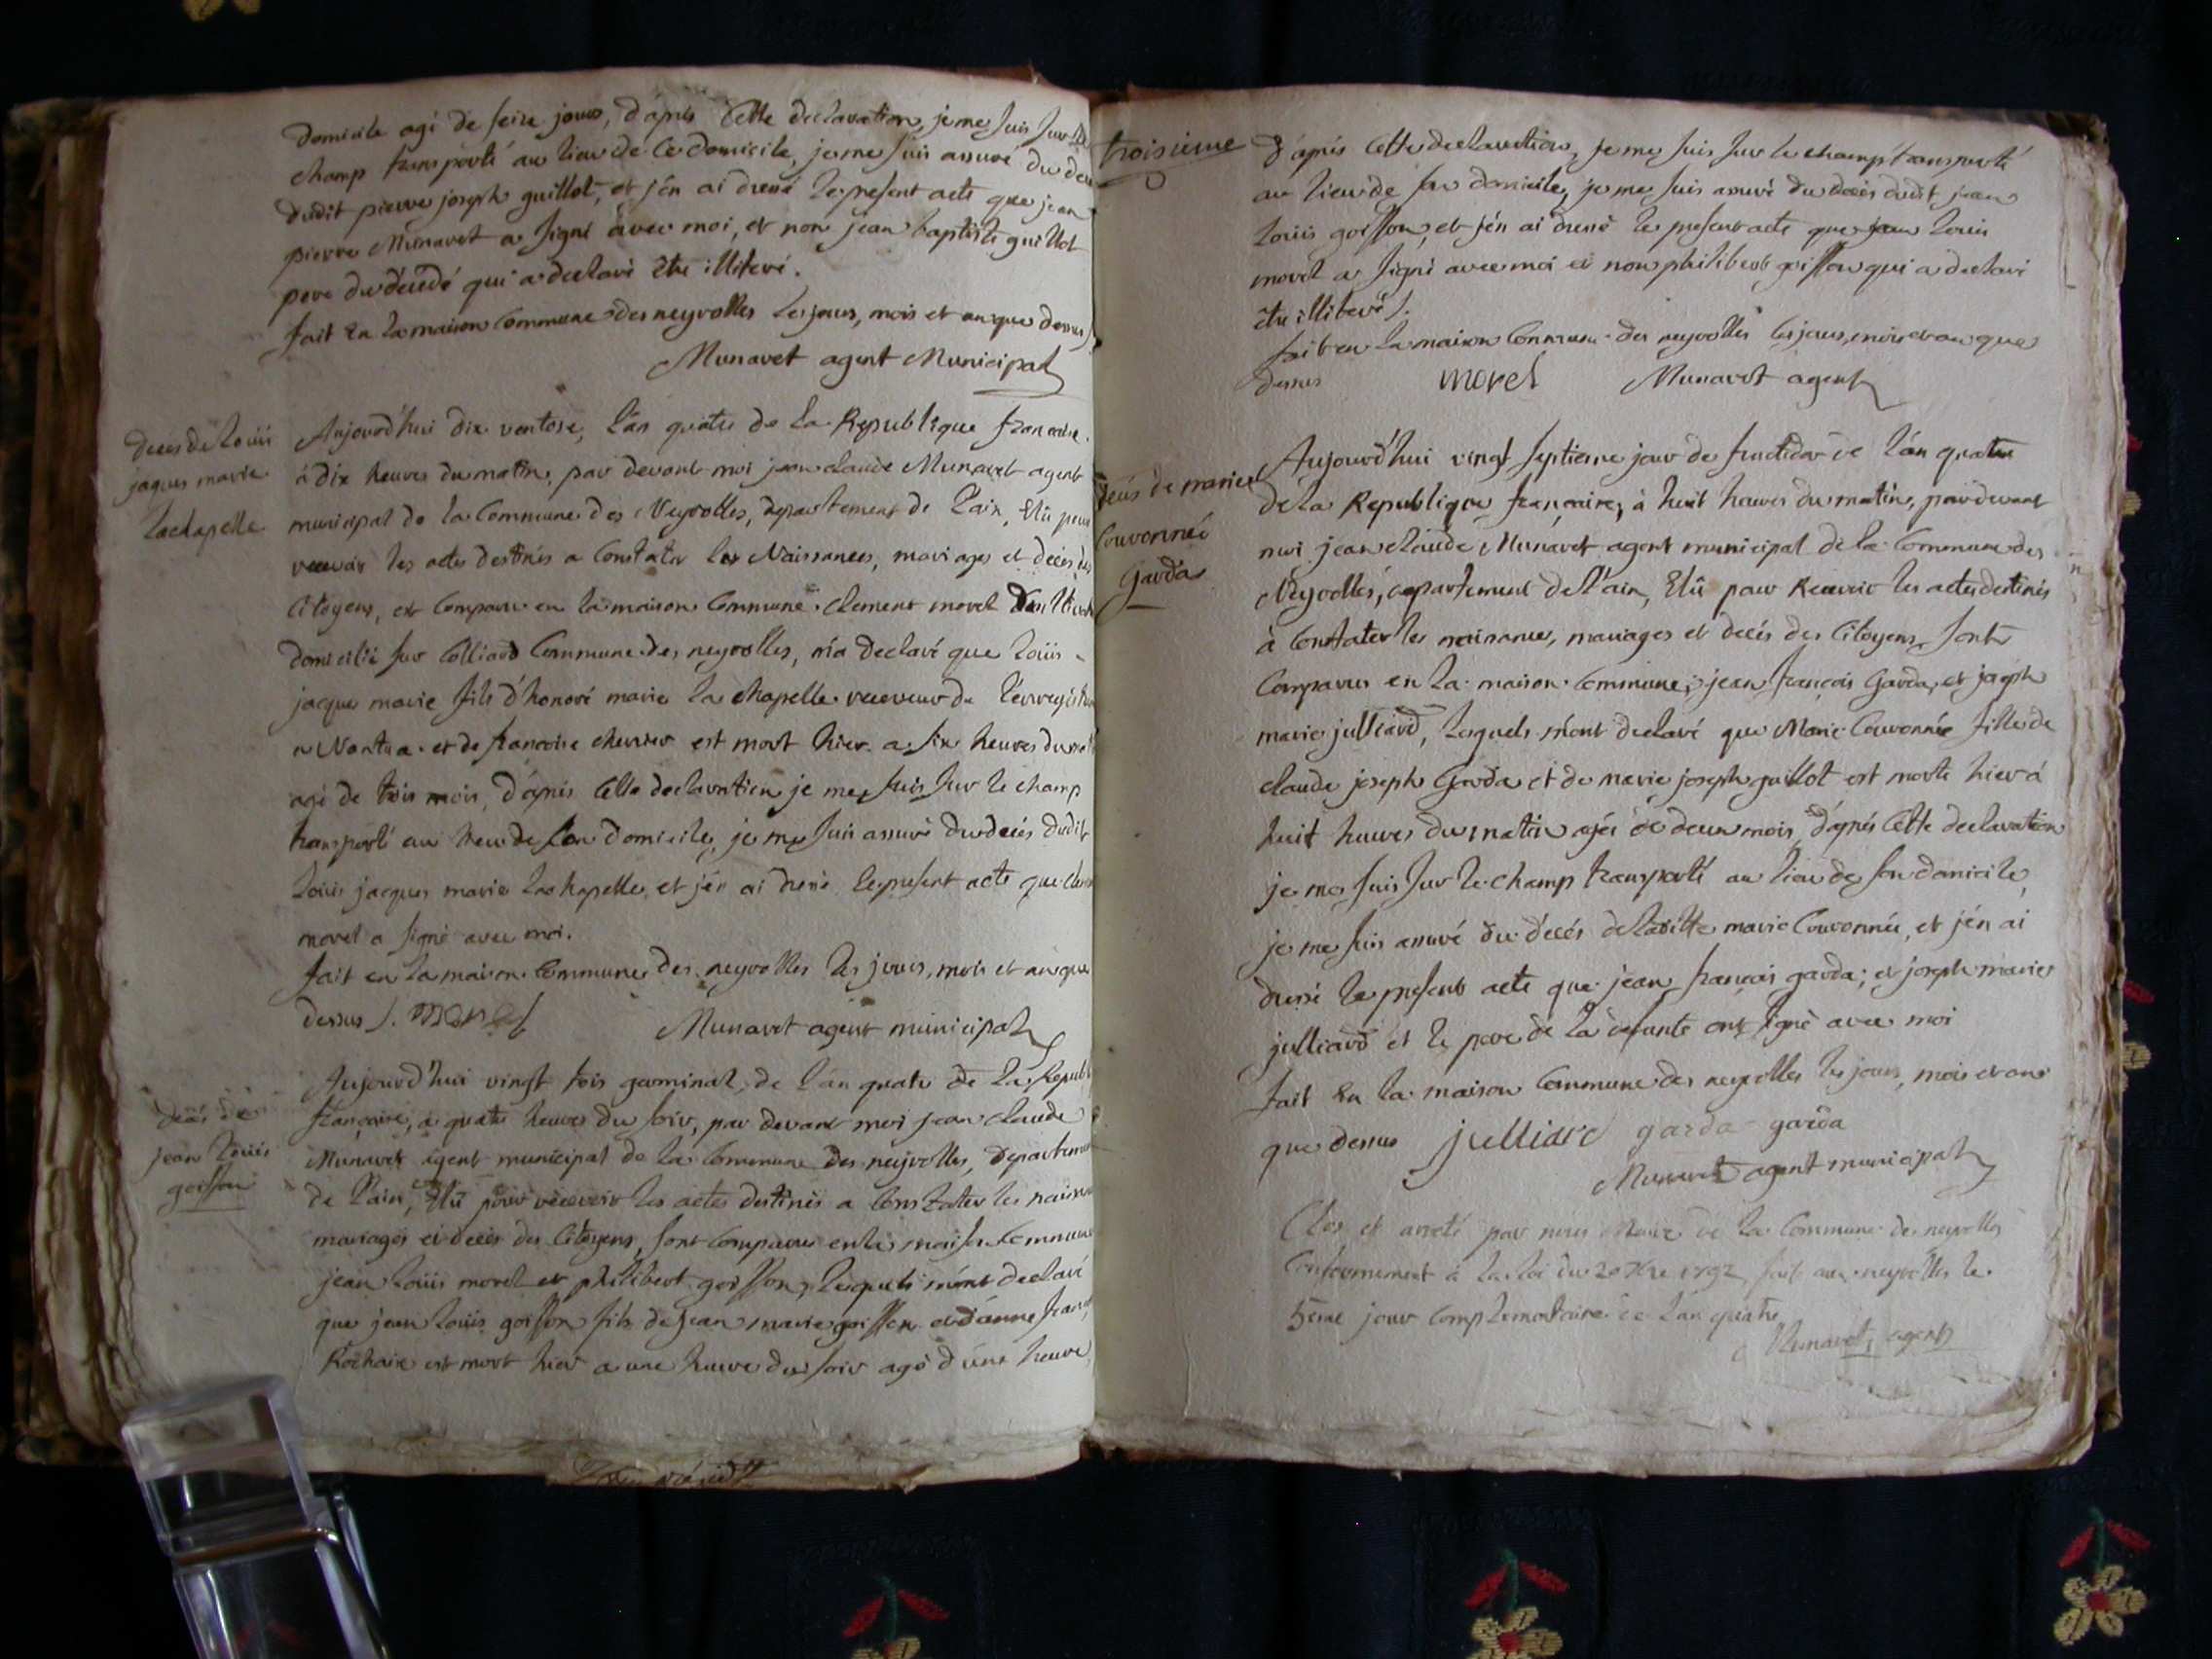 domicile agé de seize jours, d'après cette declaration, je me suis sur le
champ transporté au lieu de ce domicile, je me suis assuré du dec
dudit pierre joseph guillot, et j'en ai dressé le present acte que jean
pierre Munavet a signé avec moi, et non jean baptiste guillot
pere du décédé qui a declaré être illiteré.
fait en la maison commune des neyrolles les jours, mois et an que dessus
Munavet agent Municipal
decés de Louis
jaques marie
lachapelle
Aujourd'hui dix ventose, l'an quatre de la Republique francaise.
à dix heures du matin, par devant moi jean claude Munavet agent
municipal de la commune des Neyrolles, departement de l'ain, Elû pour
recevoir les actes destinés a constater les Naissances, mariages et décés, des
citoyens, est comparu en la maison commune. clement morel
domicilié sur colliard commune des neyrolles, m'a declaré que Louis
jacque marie fils d'honoré marie la chapelle receveur de l'enregistre
a Nantua. et de francoise chevrier est mort hier a six heures du
agé de trois mois, d'après cette declaration je me suis sur le champ
transporté au lieu de son domicile, je me suis assuré du decés dudit
Louis jacques marie lachapelle, et j'en ai dressé le present acte que
morel a signé avec moi.
fait en la maison commune des neyrolles les jours, mois et an que
dessus /. morel Munavet agent municipal
decés de
jean Louis
goisson
Aujourd'hui vingt trois germinal, de l'an quatre de la Republ
française, a quatre heures du soir, par devant moi jean claude
Munavet agent municipal de la commune des neyrolles, departement
de l'ain, Elû pour recevoir les actes destinés a constater les naissan
mariages et decés des citoyens, sont comparus en la maison commune
jean Louis morel et philibert goisson, lesquels m'ont declaré
que jean Louis goisson fils de jean marie goisson et d'anne
Rochaix est mort hier a une heure du soir agé d'une heure
troisieme
d'après cette declaration, je me suis sur le champ transporté
au lieu de son domicile, je me suis assuré du decés dudit jean
Louis goisson, et j'en ai dressé le present acte que jean Louis
morel a signé avec moi et non philibert goisson qui a declaré
être illiteré /.
fait en la maison commune des neyrolles les jours, mois et an que
dessus morel Munavet agent
decés de marie
Couronnée
Garda
Aujourd'hui vingt septieme jour de fructidor de l'an quatre
de la Republique francaise, à huit heures du matin, par devant
moi jean claude Munavet agent municipal de la commune des
Neyrolles, departement de l'ain, Elû pour recevoir les actes destinés
à constater les naissances, mariages et decés des citoyens, sont
comparus en la maison commune, jean françois Garda, et joseph
marie julliard, lesquels m'ont declaré que Marie Couronnée fille de
claude joseph Garda et de marie joseph guillot est morte hier à
huit heures du matin agée de deux mois, d'après cette declaration
je me suis sur le champ transporté au lieu de son domicile,
je me suis assuré du décés de la ditte marie Couronnée, et j'en ai
dressé le present acte que jean francois garda; et joseph marie
julliard et le pere de la defunte ont signé avec moi
fait en la maison commune des neyrolles les jours, mois et an
que dessus julliard garda garda
Munavet agent municipal
Clos et arreté par nous Maire de la commune de neyrolles
conformement à la loi du 20 7bre 1792, fait aux neyrolles le
5eme jour complementaire de l'an quatre
Munavet, agent